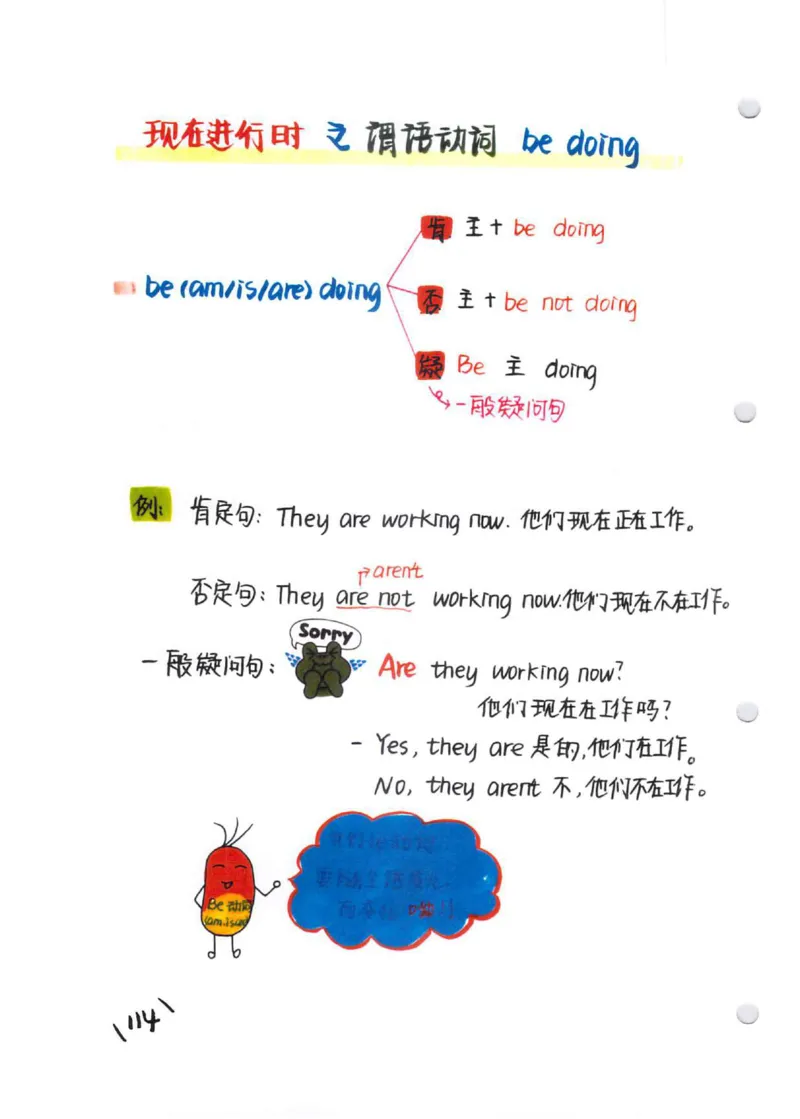 现在进行时 之 谓语动词 be doing
肯 主 + be doing
be (am/is/are) doing
否 主 + be not doing
疑 Be 主 doing
一般疑问句
例: 肯定句: They are working now. 他们现在正在工作。
arent
否定句: They are not working now.他们现在不在工作。
Sorry
一般疑问句: Are they working now?
他们现在在工作吗?
- Yes, they are 是的,他们在工作。
No, they arent 不,他们不在工作。
Be 动词
(am.is.are)
114